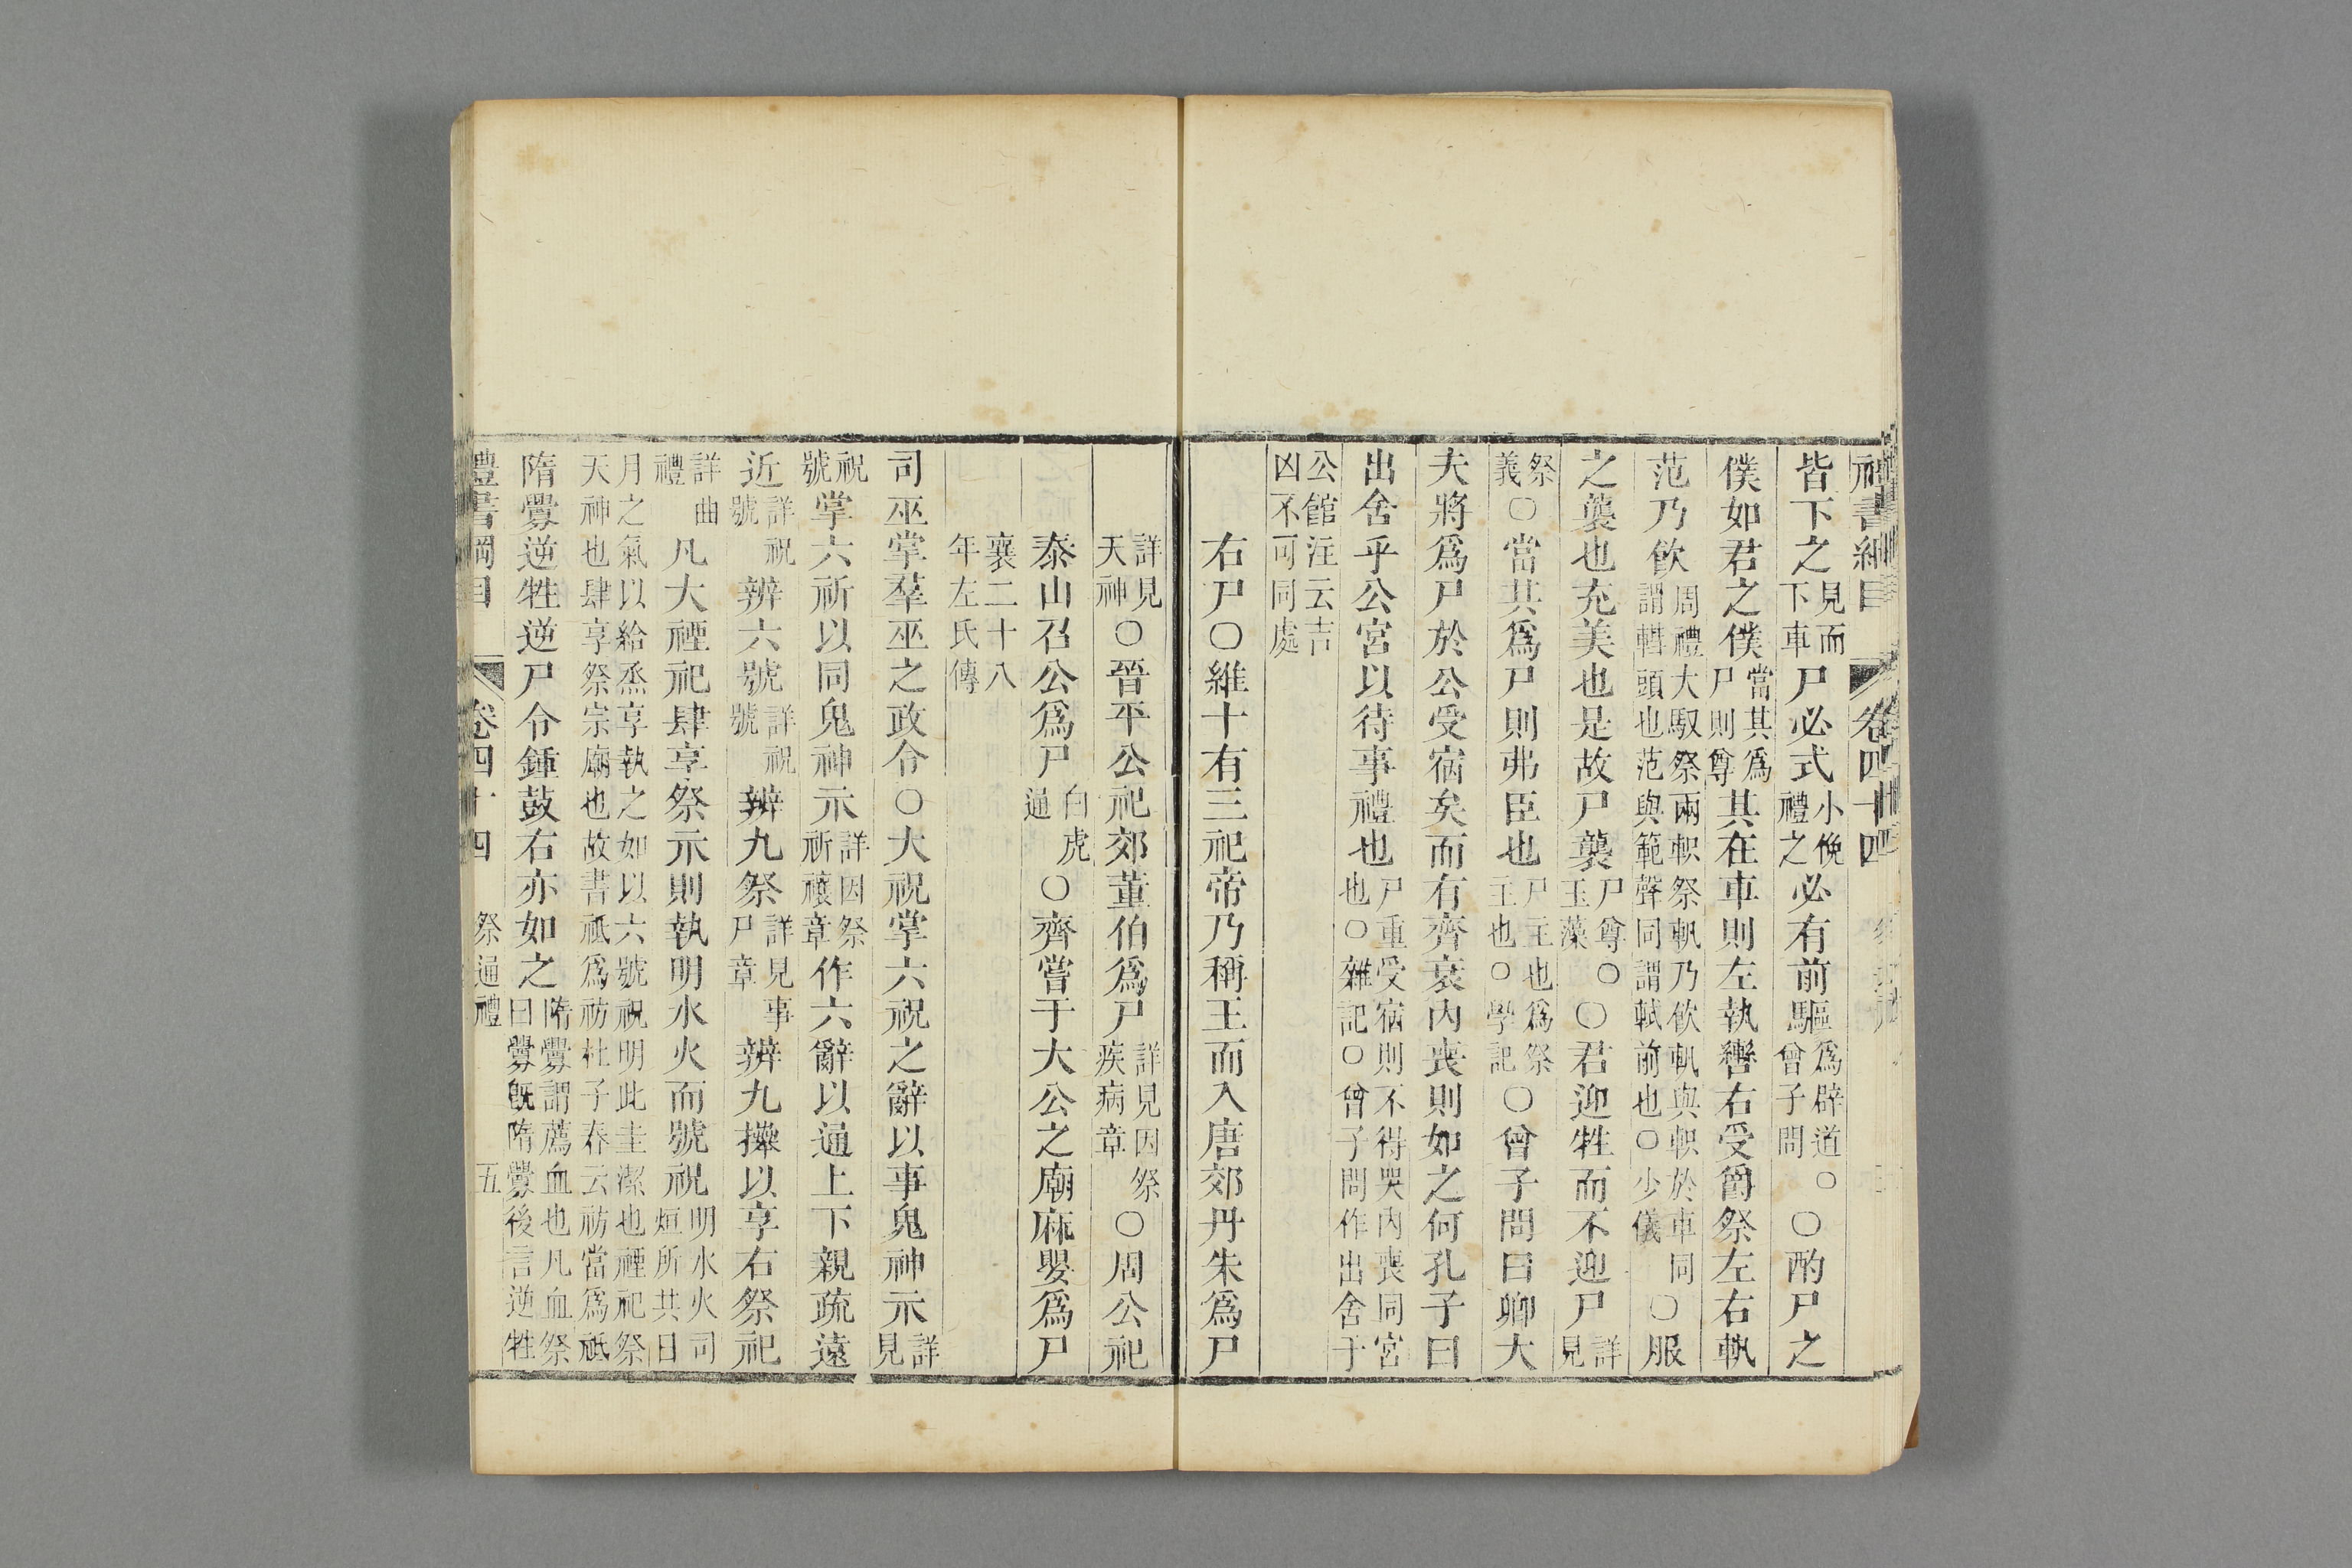 禮書綱目 卷四十四
皆下之見而下車尸必式小俛禮之必有前驅爲辟道○曾子問○酌尸之
僕如君之僕當其爲尸則尊其在車則左執轡右受爵祭左右軌
范乃飲周禮大馭祭兩軹祭軌乃飲軌與軹於車同謂轊頭也范與範聲同謂軾前也○少儀○服
之襲也充美也是故尸襲尸尊○玉藻○君迎牲而不迎尸詳見
祭義○當其爲尸則弗臣也尸主也爲祭主也○學記○曾子問曰卿大
夫將爲尸於公受宿矣而有齊衰內喪則如之何孔子曰
出舍乎公宮以待事禮也尸重受宿則不得哭內喪同宮也○雜記○曾子問作出舍于
公館注云吉凶不可同處
右尸○維十有三祀帝乃稱王而入唐郊丹朱爲尸
詳見天神○晉平公祀郊董伯爲尸詳見因祭疾病章○周公祀
泰山召公爲尸白虎通○齊嘗于大公之廟麻嬰爲尸
襄二十八年左氏傳
司巫掌羣巫之政令○大祝掌六祝之辭以事鬼神示詳見
祝號掌六祈以同鬼神示詳因祭祈禳章作六辭以通上下親疏遠
近詳祝號辨六號詳祝號辨九祭詳見事尸章辨九𢷎以享右祭祀
詳曲禮凡大禋祀肆享祭示則執明水火而號祝明水火司烜所共日
月之氣以給烝享執之如以六號祝明此圭潔也禋祀祭天神也肆享祭宗廟也故書祗爲祊杜子春云祊當爲祗
隋釁逆牲逆尸令鍾鼓右亦如之隋釁謂薦血也凡血祭曰釁旣隋釁後言逆牲
禮書綱目 卷四十四 祭通禮 五